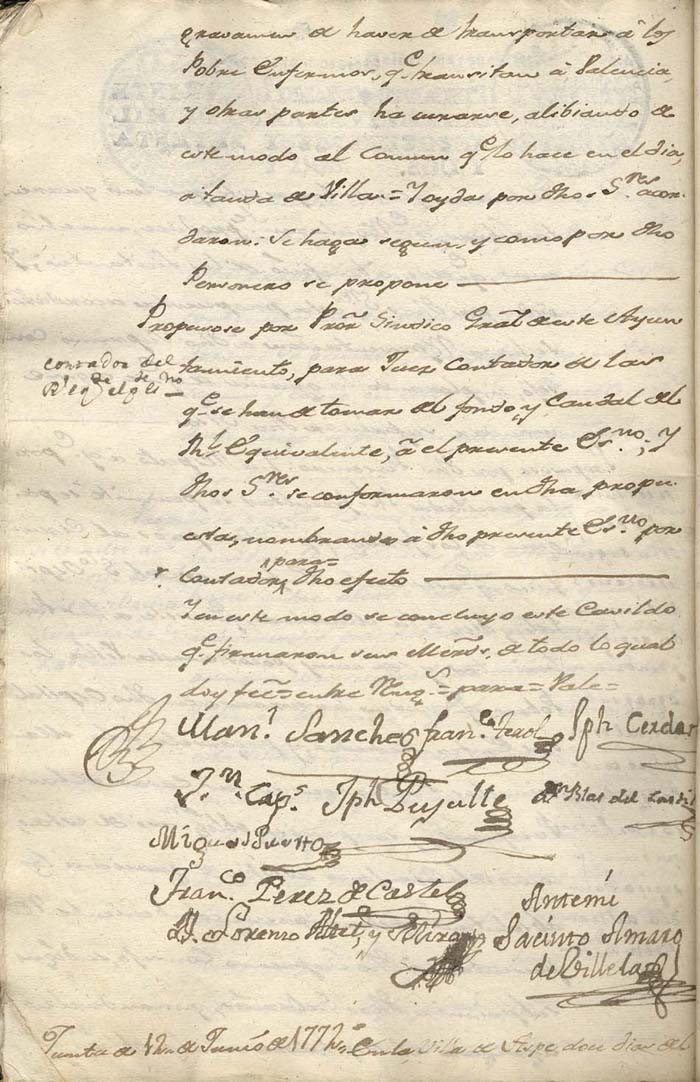 gravamen de haver de transportar â los
Pobres Enfermos, q.e transitan â Valencia,
y otras partes ha curarse, alibiando de
este modo al Comun q.e lo hace en el dia,
a tanda de Villa = Y oyda por dhos S.res acor
daron: Se haga segun, y como por dho
Personero se propone
Propusose por Pror Sindico Gral de este Ayun
tamiento, para Tuer Contador de las
q.e se han de tomar del fondo, y Caudal del
Rl. Equivalente, â el presente Ess.no; Y
dhos S.res se conformaron en dha propu
esta, nombrando â dho presente Ess.no por
Contador, para= dho efecto
Y en este modo se concluyo este Cavildo
q.e firmaron sus Merds. de todo lo qual
doy feê = entre Rengs. = para = Vale =
contador del
Man.l Sanches Fran.co Terol Jph Cerdan
J.n Cap.s Jph Pujalte Blas del
Miguel Puerto
Fran.co Perez de Castel
D. Lorenzo Abel, y
Antemi
Jacinto Amaro
de Villela
Junta de 12,, de Junio de 1772,, En la Villa de Aspe, doce dias del